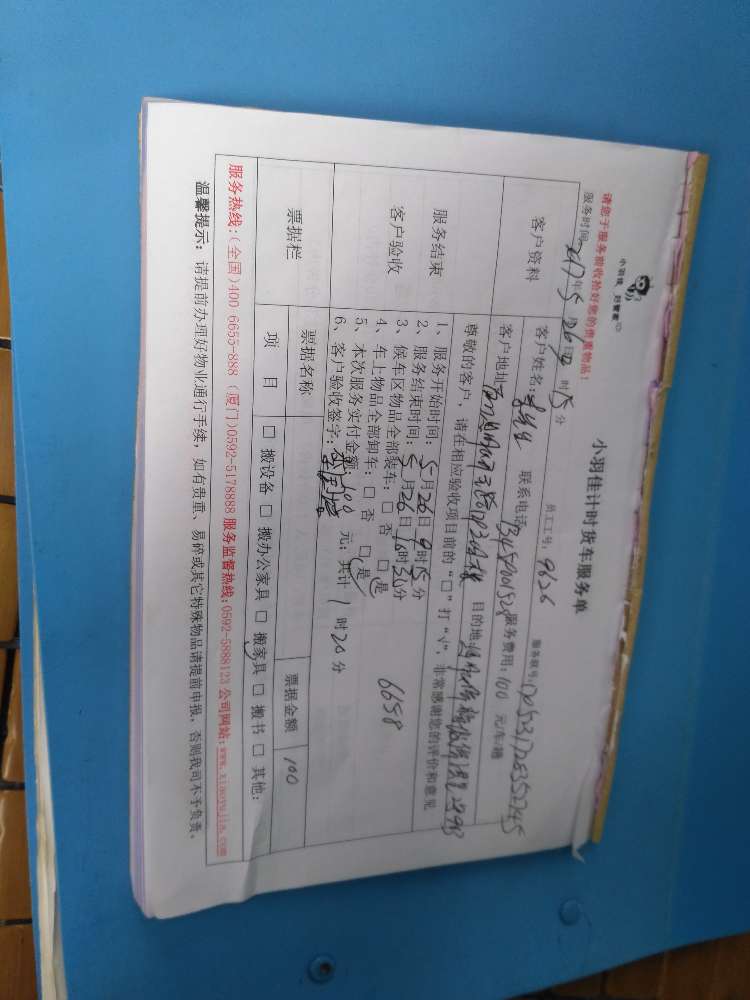 小羽佳 好管家
请您于服务前收拾好您的贵重物品!
小羽佳计时货车服务单
服务时间: 2017年5月26日9时15分
员工工号: 9626
服务联号:
客户资料
客户姓名: 李先生 联系电话 服务费用: 100 元/车趟
客户地址: 目的地:
尊敬的客户,请在相应验收项目前的“□”打“√”,非常感谢您的评价和意见
服务结束
客户验收
1、服务开始时间: 5月26日9时15分
2、服务结束时间: 5月26日
3、候车区物品全部装车: □ 否 □ 是
4、车上物品全部卸车: □ 否 □ 是
5、本次服务实付金额: 100 元; 共计 1 时20分
6、客户验收签字:
6658
票据栏
票据名称
票据金额
100
项 目
□ 搬设备 □ 搬办公家具 □ 搬家具 □ 搬书 □ 其他:
服务热线:(全国)400 6655-888 (厦门)0592-5178888 服务监督热线:0592-5888123 公司网站:www.xiaoyujia.com
温馨提示: 请提前办理好物业通行手续,如有贵重、易碎或其它特殊物品请提前申报,否则我司不予负责。